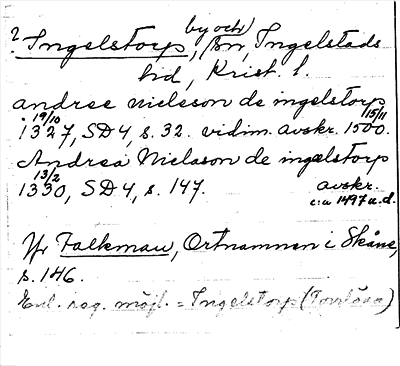 ? Ingelstorp, by och sn, Ingelstads
hd, Krist. l.
andree nielsson de ingelstorp
19/10 1327, SD 4, s. 32. vidim. avskr. 15/11 1500.
Andrea Nielsson de ingelstorp
13/2 1330, SD 4, s. 147. avskr.
c:a 1497 u.d.
Jfr Falkman, Ortnamnen i Skåne,
s. 146.
Enl. reg. möjl. = Ingelstorp (Tomelösa)